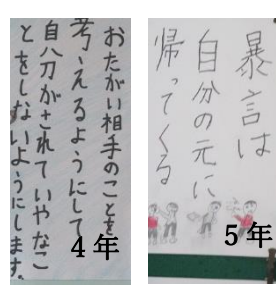 おたがい相手のことを
考えるようにして
自分がされていやなこ
とをしないようにします。
4年
暴言は
自分の元に
帰ってくる
5年